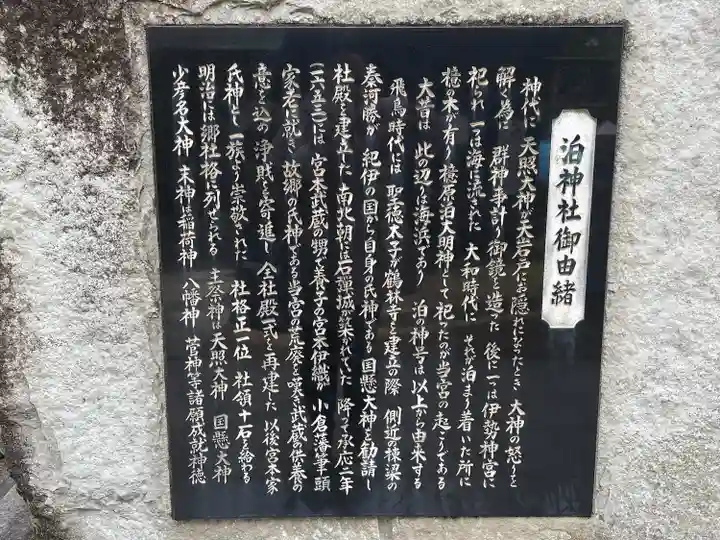 泊神社御由緒
神代に 天照大神が天岩戸にお隠れになったとき 大神の怒りを
解く為に 群神事計り御鏡を造った 後に一つは伊勢神宮に
祀られ 一つは海に流された 大和時代に それが泊まり着いた所に
檍の木が有り 檍原泊大明神として祀ったのが当宮の起こりである
大昔は 此の辺は海浜であり 泊の神号は以上から由来する
飛鳥時代には 聖徳太子が鶴林寺を建立の際 側近の棟梁の
秦河勝が 紀伊の国から自身の氏神である国懸大神を勧請し
社殿を建立した 南北朝には石弾城が築かれていた 降って承応二年
(一六五三)には 宮本武蔵の甥で養子の宮本伊織が 小倉藩筆頭
家老に就き 故郷の氏神である当宮の荒廃を嘆き 武蔵の供養の
意を込め 浄財を寄進し 全社殿一式を再建した 以後宮本家
氏神として 一族から崇敬された 社格正一位 社領十一石を給わる
明治には郷社格に列せられる 主祭神は天照大神 国懸大神
少彦名大神 末神は稲荷神 八幡神 菅神等諸願成就神徳